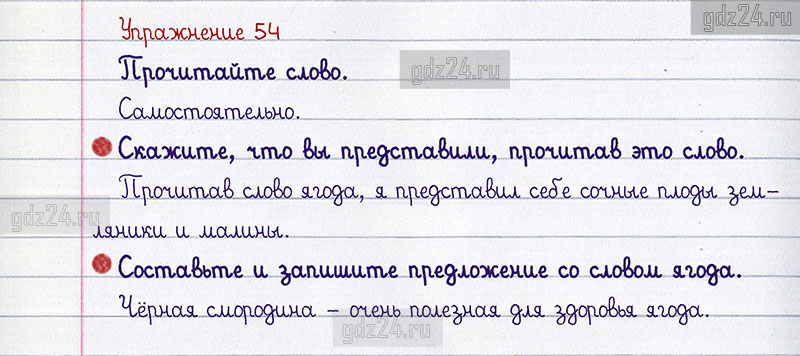 gdz24.ru
Упражнение 54
Прочитайте слово.
gdz24.ru
Самостоятельно.
Скажите, что вы представили, прочитав это слово.
Прочитав слово ягода, я представил себе сочные плоды зем-
gdz24.ru
ляники и малины.
Составьте и запишите предложение со словом ягода.
Чёрная смородина – очень полезная для здоровья ягода.
gdz24.ru